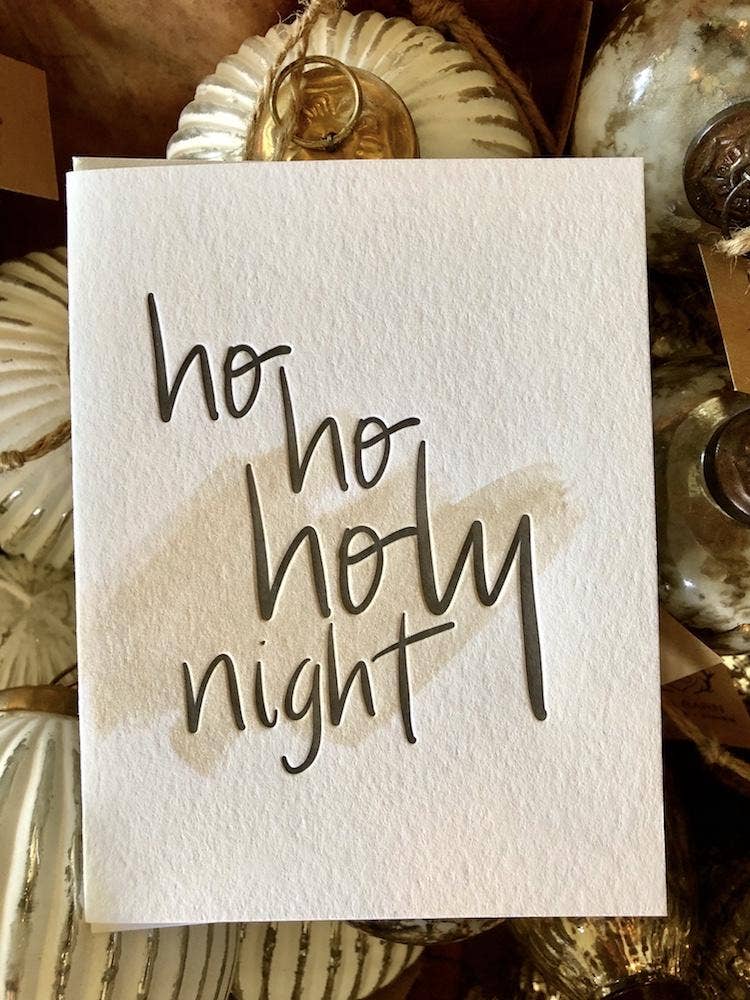 ho
ho
holy
night
BARN